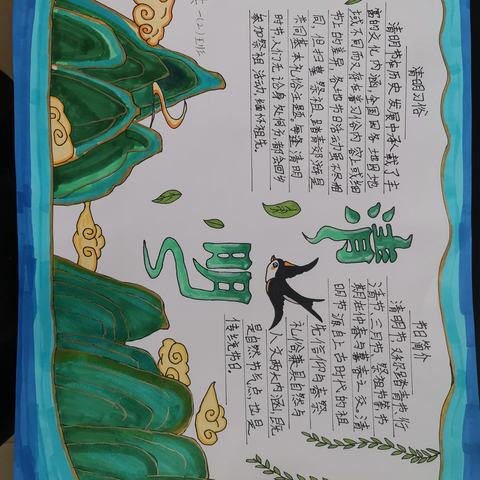 清明
清明习俗
清明节在历史发展中承载了丰
富的文化内涵,全国因各地因地
域不同而又存在着习俗内容上或细
节上的差异,各地节日活动虽不尽相
同,但扫墓祭祖、踏青郊游是
共同基本礼俗主题。每逢清明
时节,人们无论身处何方,都会回乡
参加祭祖活动,缅怀祖先。
节日简介
清明节,又称踏青节、行
清节、三月节、祭祖节等,节
期在仲春与暮春之交。清
明节源自上古时代的祖
先信仰与春祭
礼俗,兼具自然与
人文两大内涵,既
是自然节气点,也是
传统节日。